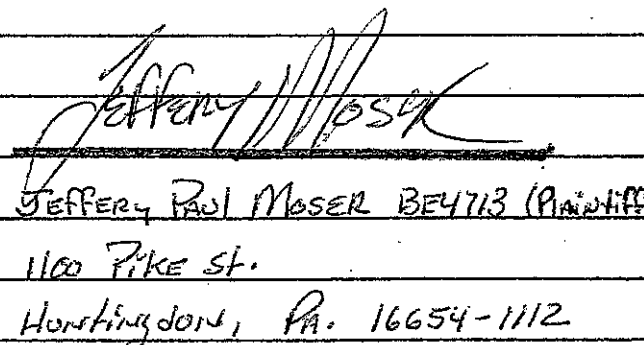 Jeffery Moser
Jeffery Paul Moser BE4713 (Plaintiff
1100 Pike St.
Huntingdon, Pa. 16654-1112